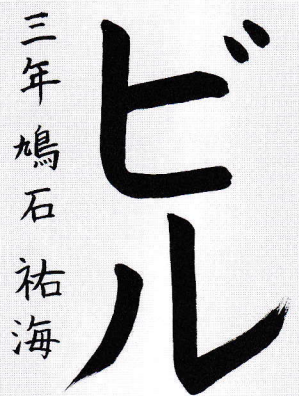 ビル
三年鳩石祐海